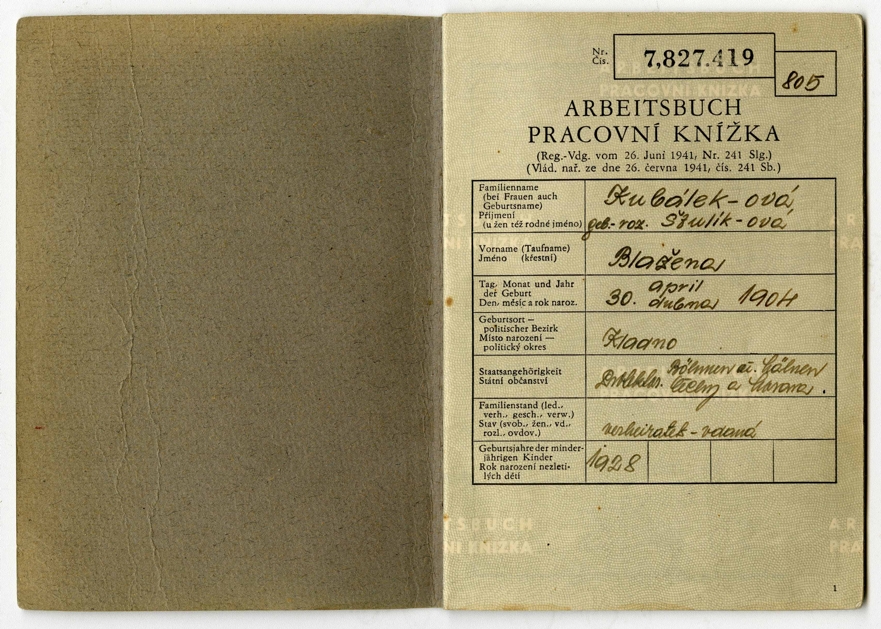 Nr.
Čís.
7,827.419
805
ARBEITSBUCH
PRACOVNÍ KNÍŽKA
(Reg.-Vdg. vom 26. Juni 1941, Nr. 241 Slg.)
(Vlád. nař. ze dne 26. června 1941, čís. 241 Sb.)
Familienname
(bei Frauen auch
Geburtsname)
Příjmení
(u žen též rodné jméno)
Kubálek-ová
geb.-roz. Šťulík-ová
Vorname (Taufname)
Jméno (křestní)
Blažena
Tag, Monat und Jahr
der Geburt
Den, měsíc a rok naroz.
april
30. dubna 1904
Geburtsort —
politischer Bezirk
Místo narození —
politický okres
Kladno
Staatsangehörigkeit
Státní občanství
Böhmen u. Mähren
Čechy a Morava.
Familienstand (led.,
verh., gesch., verw.)
Stav (svob., žen., vd.,
rozl., ovdov.)
verheiratet-vdaná
Geburtsjahre der minder-
jährigen Kinder
Rok narození nezleti-
lých dětí
1928
ARBEITSBUCH
PRACOVNÍ KNÍŽKA
TSBUCH
NÍ KNÍŽKA
AR
PRA
1